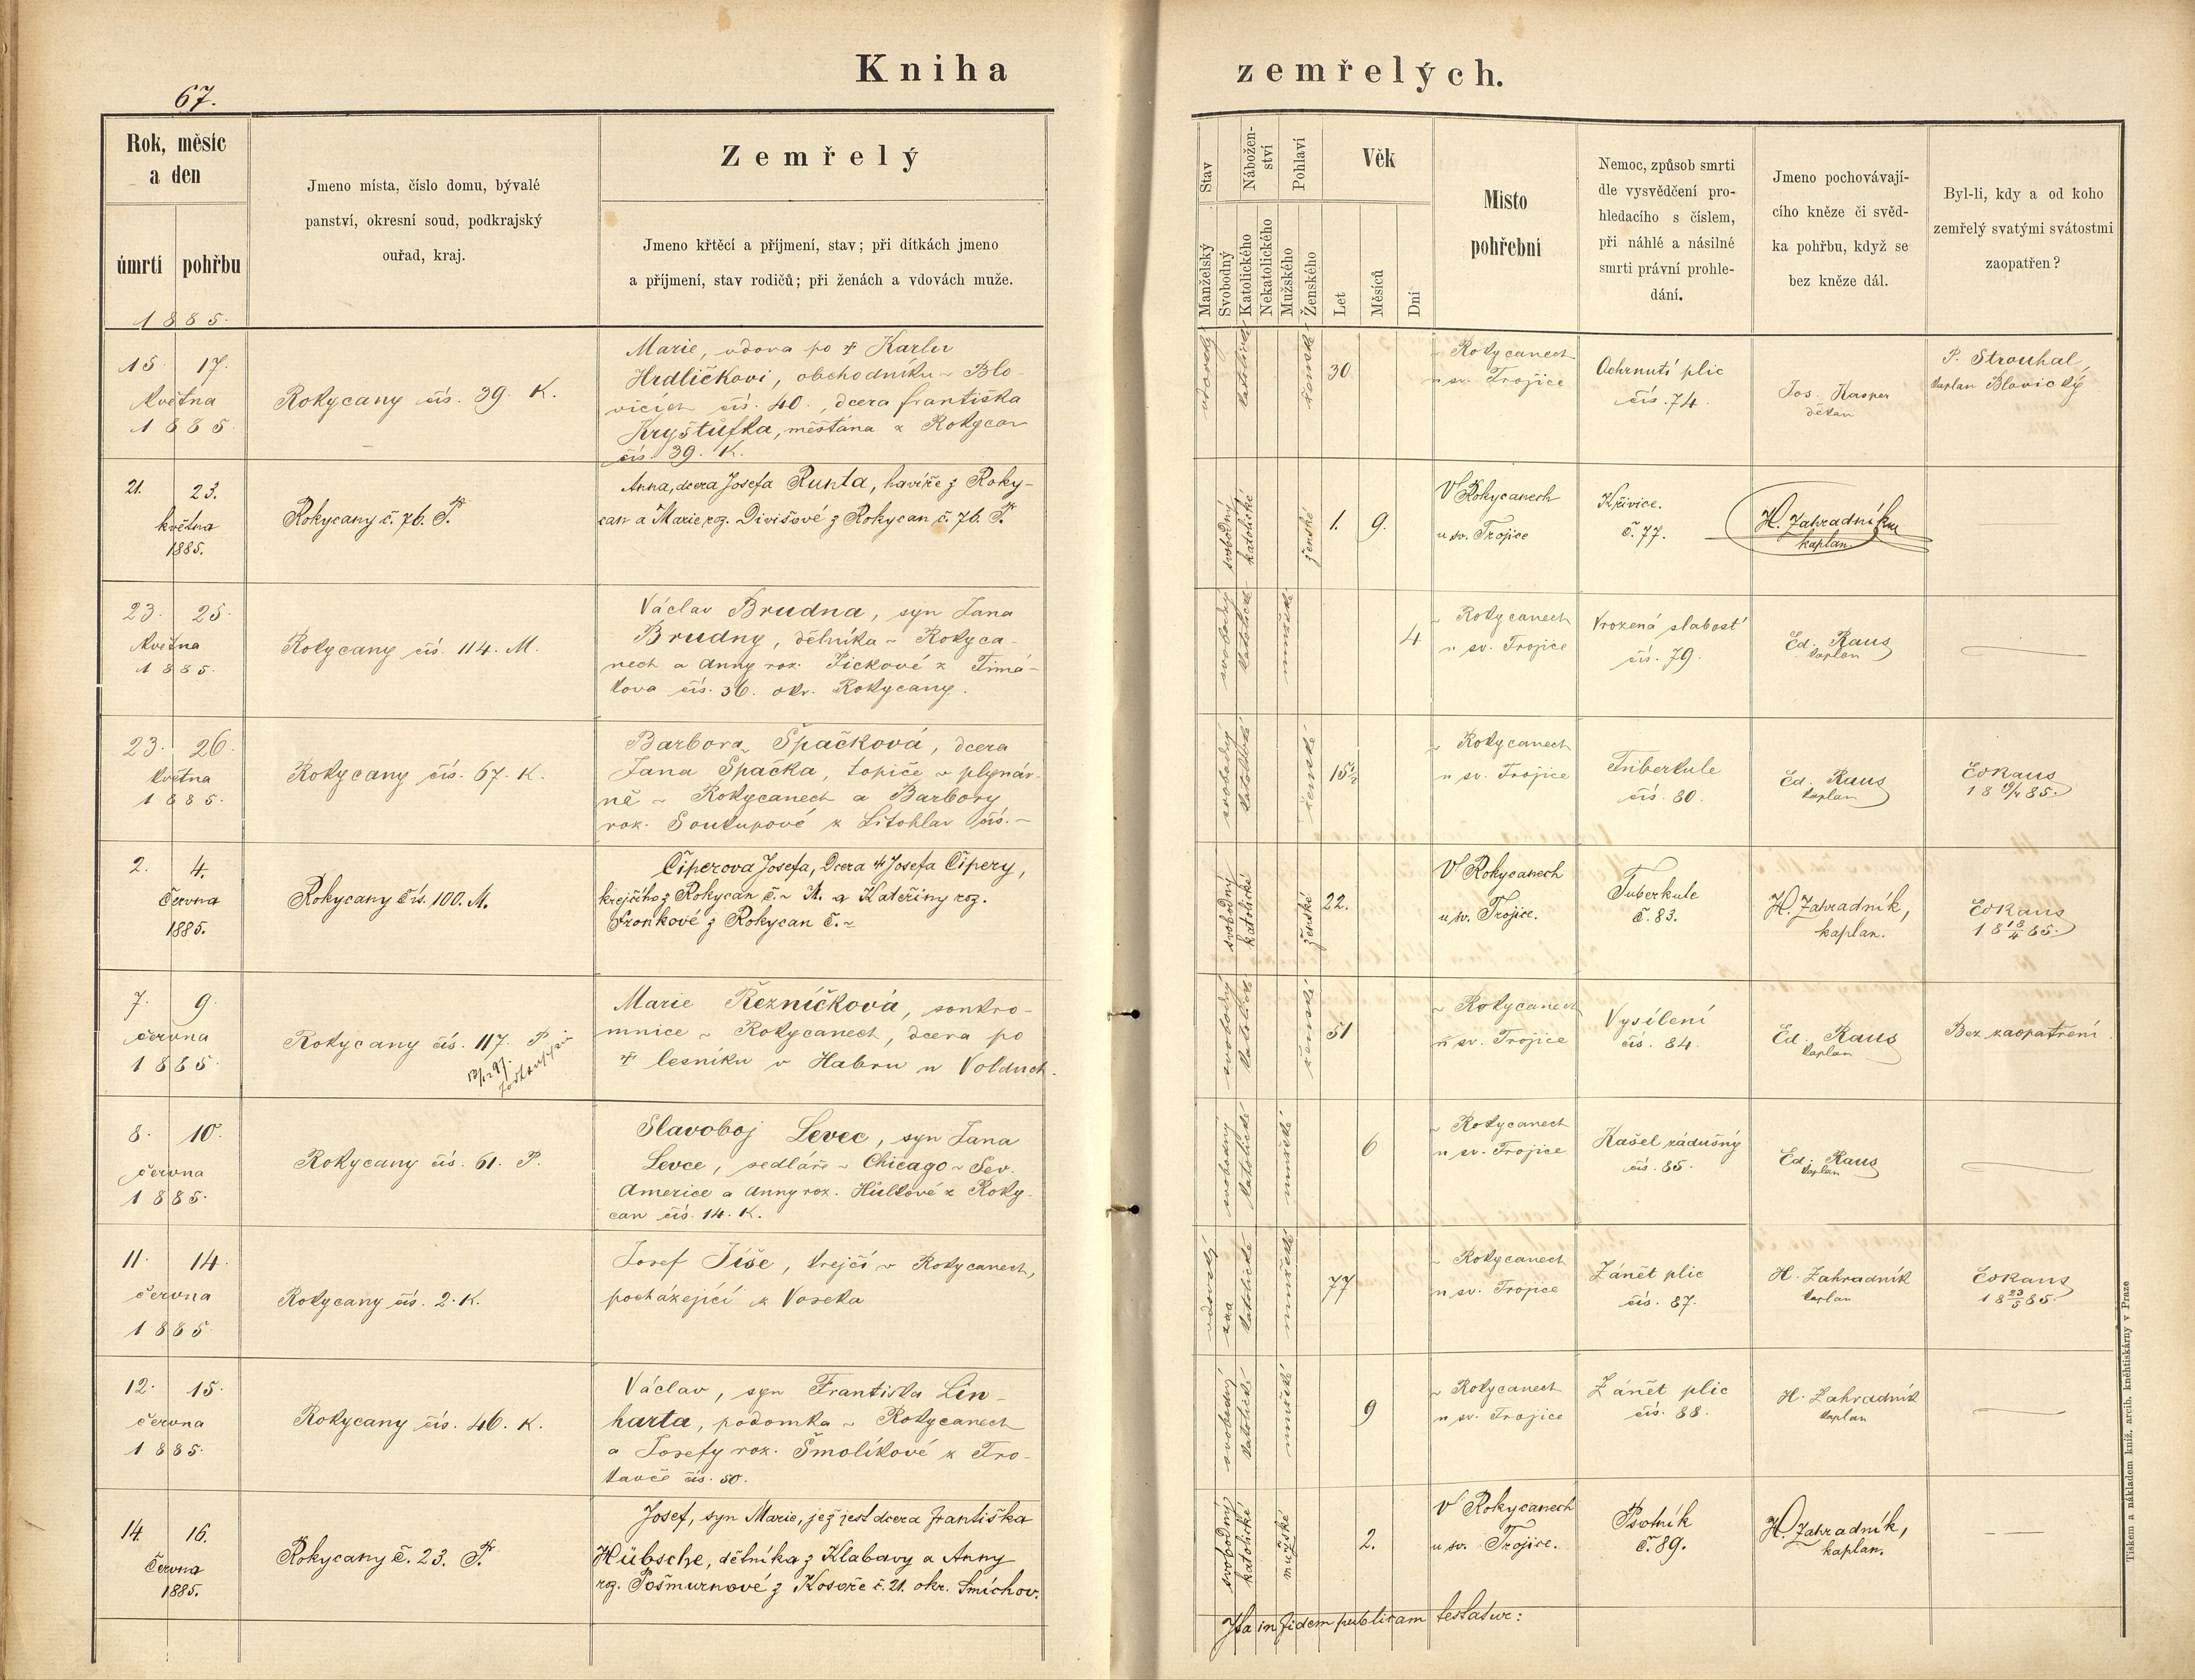 Kniha zemřelých.
67.
Rok, měsíc
a den
úmrtí pohřbu
1885.
Jmeno místa, číslo domu, bývalé
panství, okresní soud, podkrajský
ouřad, kraj.
Zemřelý
Jmeno křtěcí a příjmení, stav; při dítkách jmeno
a příjmení, stav rodičů; při ženách a vdovách muže.
Stav
Manželský
Svobodný
Nábožen-
ství
Katolického
Nekatolického
Pohlaví
Mužského
Ženského
Věk
Let
Měsíců
Dní
Místo
pohřební
Nemoc, způsob smrti
dle vysvědčení pro-
hledacího s číslem,
při náhlé a násilné
smrti právní prohle-
dání.
Jmeno pochovávají-
cího kněze či svěd-
ka pohřbu, když se
bez kněze dál.
Byl-li, kdy a od koho
zemřelý svatými svátostmi
zaopatřen?
15 17.
května
1885.
Rokycany čís. 39. K.
Marie, vdova po † Karlu
Hrdličkovi, obchodníku v Blo-
vicích čís. 40., dcera Františka
Kryštůfka, měšťána z Rokycan
čís. 39. K.
vdovský
katolické
ženské
30
v Rokycanech
u sv. Trojice
Ochrnutí plic
čís. 74.
Jos. Kasper
děkan
P. Strouhal,
kaplan Blovický
21. 23.
května
1885.
Rokycany č. 76. P.
Anna, dcera Josefa Runta, havíře z Roky-
can a Marie roz. Divišové z Rokycan č. 76. P.
svobodný
katolické
ženské
1. 9.
V Rokycanech
u sv. Trojice
Křivice.
č. 77.
H. Zahradník
kaplan
23. 25.
května
1885.
Rokycany čís. 114. M.
Václav Brudna, syn Jana
Brudny, dělníka v Rokyca-
nech a Anny roz. Pickové z Timá-
kova čís. 36. okr. Rokycany.
svobodný
katolické
mužské
4
v Rokycanech
u sv. Trojice
Vrozená slabosť
čís. 79.
Ed. Raus
kaplan
23. 26.
května
1885.
Rokycany čís. 67. K.
Barbora Špačková, dcera
Jana Špačka, topiče v plynár-
ně v Rokycanech a Barbory
roz. Soukupové z Litohlav čís. –
svobodný
katolické
ženské
15½
v Rokycanech
u sv. Trojice
Tuberkule
čís. 80.
Ed. Raus
kaplan
Ed Raus
18 19/4 85.
2. 4.
Června
1885.
Rokycany čís. 100. M.
Čiperova Josefa, Dcera † Josefa Čipery,
krejčího z Rokycan č. ~ M. a Kateřiny roz.
Fronkové z Rokycan č. ~
svobodný
katolické
ženské
22.
V Rokycanech
u sv. Trojice.
Tuberkule
č. 83.
H. Zahradník,
kaplan.
Ed Raus
18 18/4 85.
7. 9.
června
1885.
Rokycany čís. 117. P.
Marie Řezníčková, soukro-
mnice v Rokycanech, dcera po
† lesníku v Habru u Volduch.
svobodný
katolické
ženské
51
v Rokycanech
u sv. Trojice
Vysílení
čís. 84.
Ed. Raus
kaplan
Bez zaopatření
8. 10.
června
1885.
Rokycany čís. 61. P.
Slavoboj Levec, syn Jana
Levce, sedláře v Chicago v Sev.
Americe a Anny roz. Hůlkové z Roky-
can čís. 14. K.
svobodný
katolické
mužské
6
v Rokycanech
u sv. Trojice
Kašel zádušný
čís. 85.
Ed. Raus
kaplan
11. 14.
června
1885.
Rokycany čís. 2. K.
Josef Jíše, krejčí v Rokycanech,
pocházející z Voseka
vdovský
katolické
mužské
77
v Rokycanech
u sv. Trojice
Zánět plic
čís. 87.
H. Zahradník
kaplan
Ed Raus
18 23/5 85.
12. 15.
června
1885.
Rokycany čís. 46. K.
Václav, syn Františka Lin-
harta, podomka v Rokycanech
a Josefy roz. Šmolíkové z Tro-
kavce čís. 50.
svobodný
katolické
mužské
9
v Rokycanech
u sv. Trojice
Zánět plic
čís. 88.
H. Zahradník
kaplan
14. 16.
Června
1885.
Rokycany č. 23. P.
Josef, syn Marie, jež jest dcera Františka
Hübsche, dělníka z Klabavy a Anny
roz. Pošmurnové z Kosoře č. 21. okr. Smíchov.
svobodný
katolické
mužské
2.
V Rokycanech
u sv. Trojice.
Psotník
č. 89.
H. Zahradník,
kaplan.
Ita in fidem publicam testatur:
Tiskem a nákladem kníž. arcib. kněhtiskárny v Praze